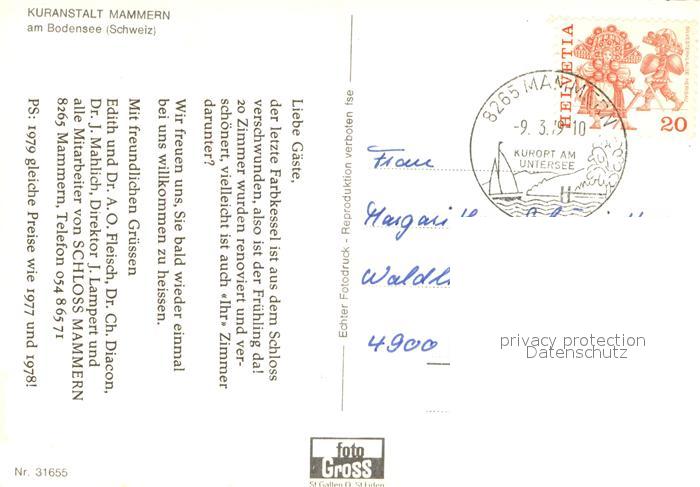 KURANSTALT MAMMERN
am Bodensee (Schweiz)
Liebe Gäste,
der letzte Farbkessel ist aus dem Schloss
verschwunden, also ist der Frühling da!
20 Zimmer wurden renoviert und ver-
schönert, vielleicht ist auch «Ihr» Zimmer
darunter?
Wir freuen uns, Sie bald wieder einmal
bei uns willkommen zu heissen.
Mit freundlichen Grüssen
Edith und Dr. A. O. Fleisch, Dr. Ch. Diacon,
Dr. J. Mahlich, Direktor J. Lampert und
alle Mitarbeiter von SCHLOSS MAMMERN
8265 Mammern, Telefon 054 8 65 71
PS: 1979 gleiche Preise wie 1977 und 1978!
Nr. 31655
Echter Fotodruck - Reproduktion verboten
foto
Gross
St Gallen O. St Fiden
HELVETIA
20
8265 MAMMERN
-9. 3.79-10
KURORT AM
UNTERSEE
Frau
4900
privacy protection
Datenschutz